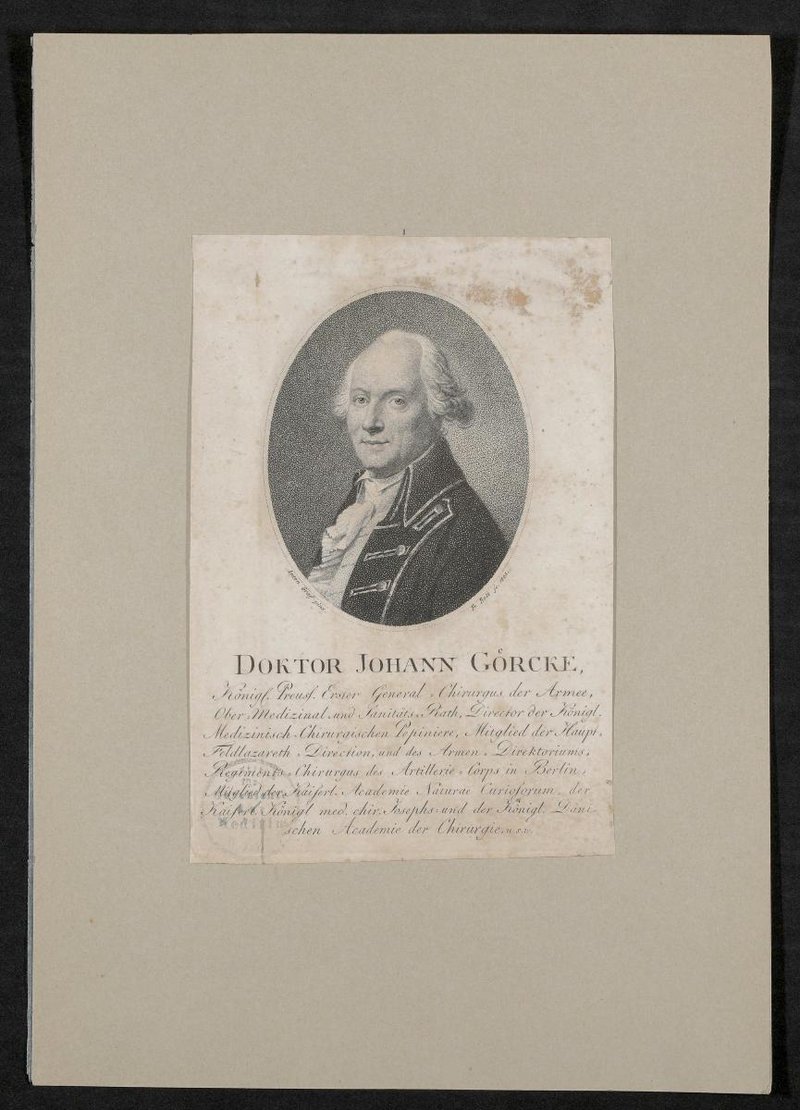 1
Anton Graf pinx.
Fr. Bolt sc. 1801.
DOKTOR JOHANN GÖRCKE,
Königl. Preusl. Erster General-Chirurgus der Armee,
Ober-Medizinal-und Sanitäts-Rath, Director der Königl.
Medizinisch-Chirurgischen Pepiniere, Mitglied der Haupt-
Feldlazareth-Direction, und des Armen-Direktoriums,
Regiments-Chirurgus des Artillerie-Corps in Berlin,
Mitglied der Kaiserl. Academie Naturae Curiosorum, der
Kaiserl. Königl. med. chir. Josephs- und der Königl. Däni-
schen Academie der Chirurgie, u.s.w.